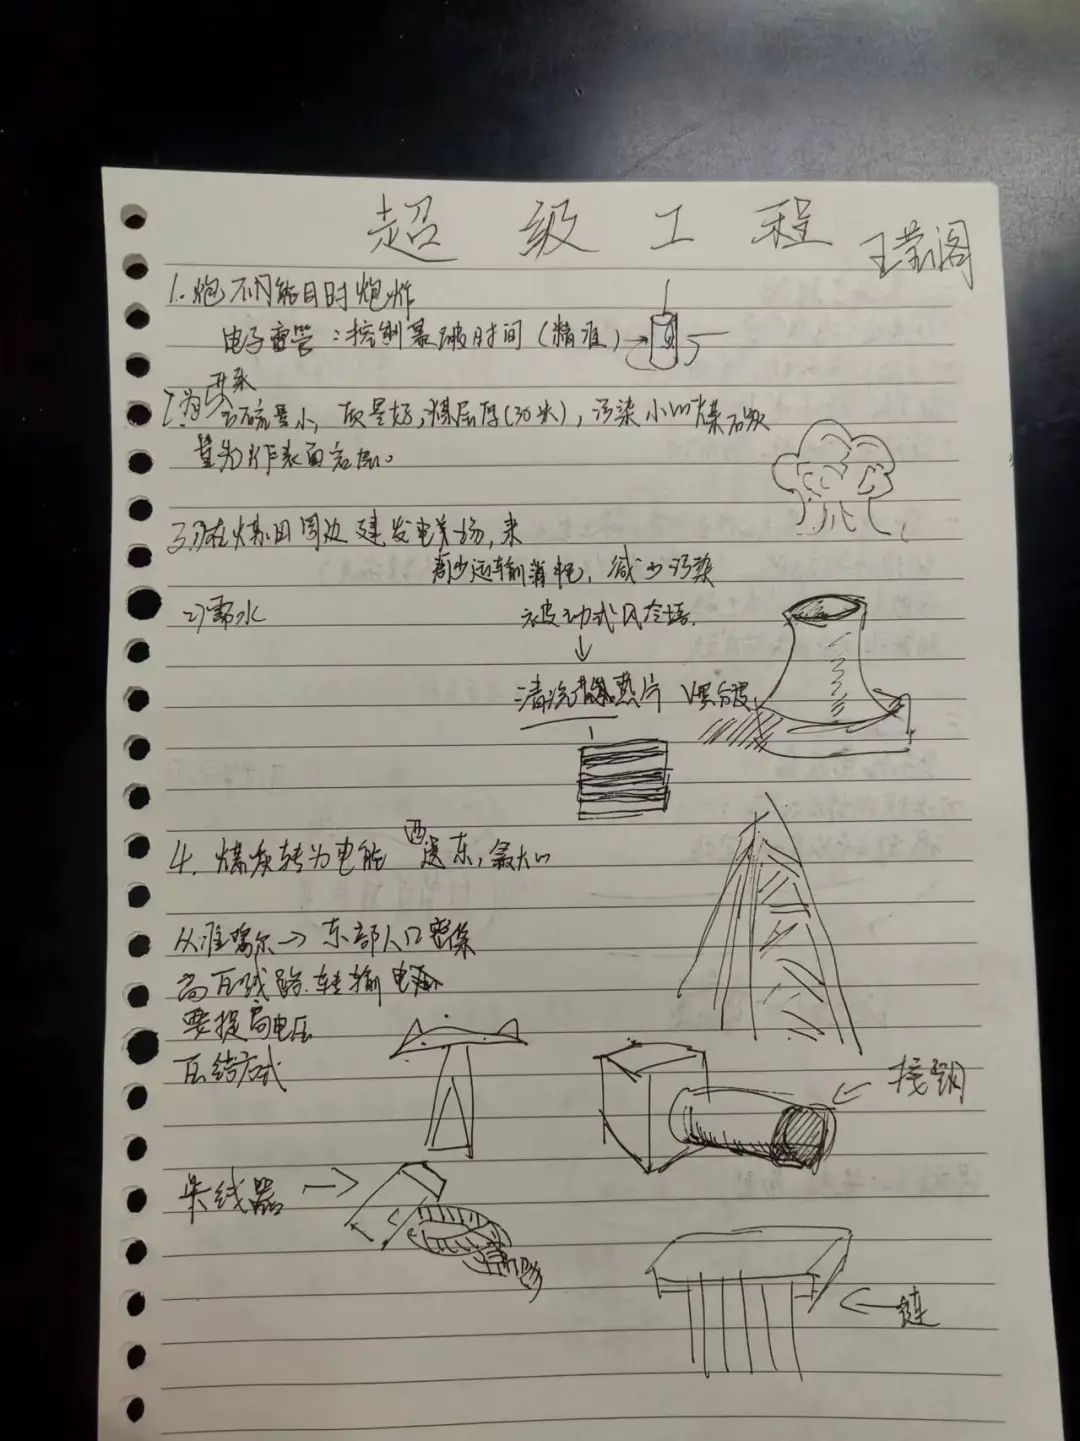 超级工程
王莹阁
1.炮不能同时炮炸
电子雷管：控制爆破时间（精准）
开采
含硫量小，质量好，煤层厚(30米)，污染小的煤
为作表面岩层。
3.在煤田周边建发电站场，来
减少运输消耗，减少污染
2)需水
被动式风冷塔
↓
清洗散热片
4.煤炭转为电能 西送东，最大
从准噶尔→东部人口密集
高压线路.转输电
要提高电压
压结方式
接钢
卡线器→
链